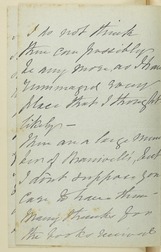 I do not think
there can possibly
be any more as I have
rummaged every
place that I thought
likely —
There are a large num
ber of Branwell's, but
I don't suppose you
care to have them
Many thanks for
the books received